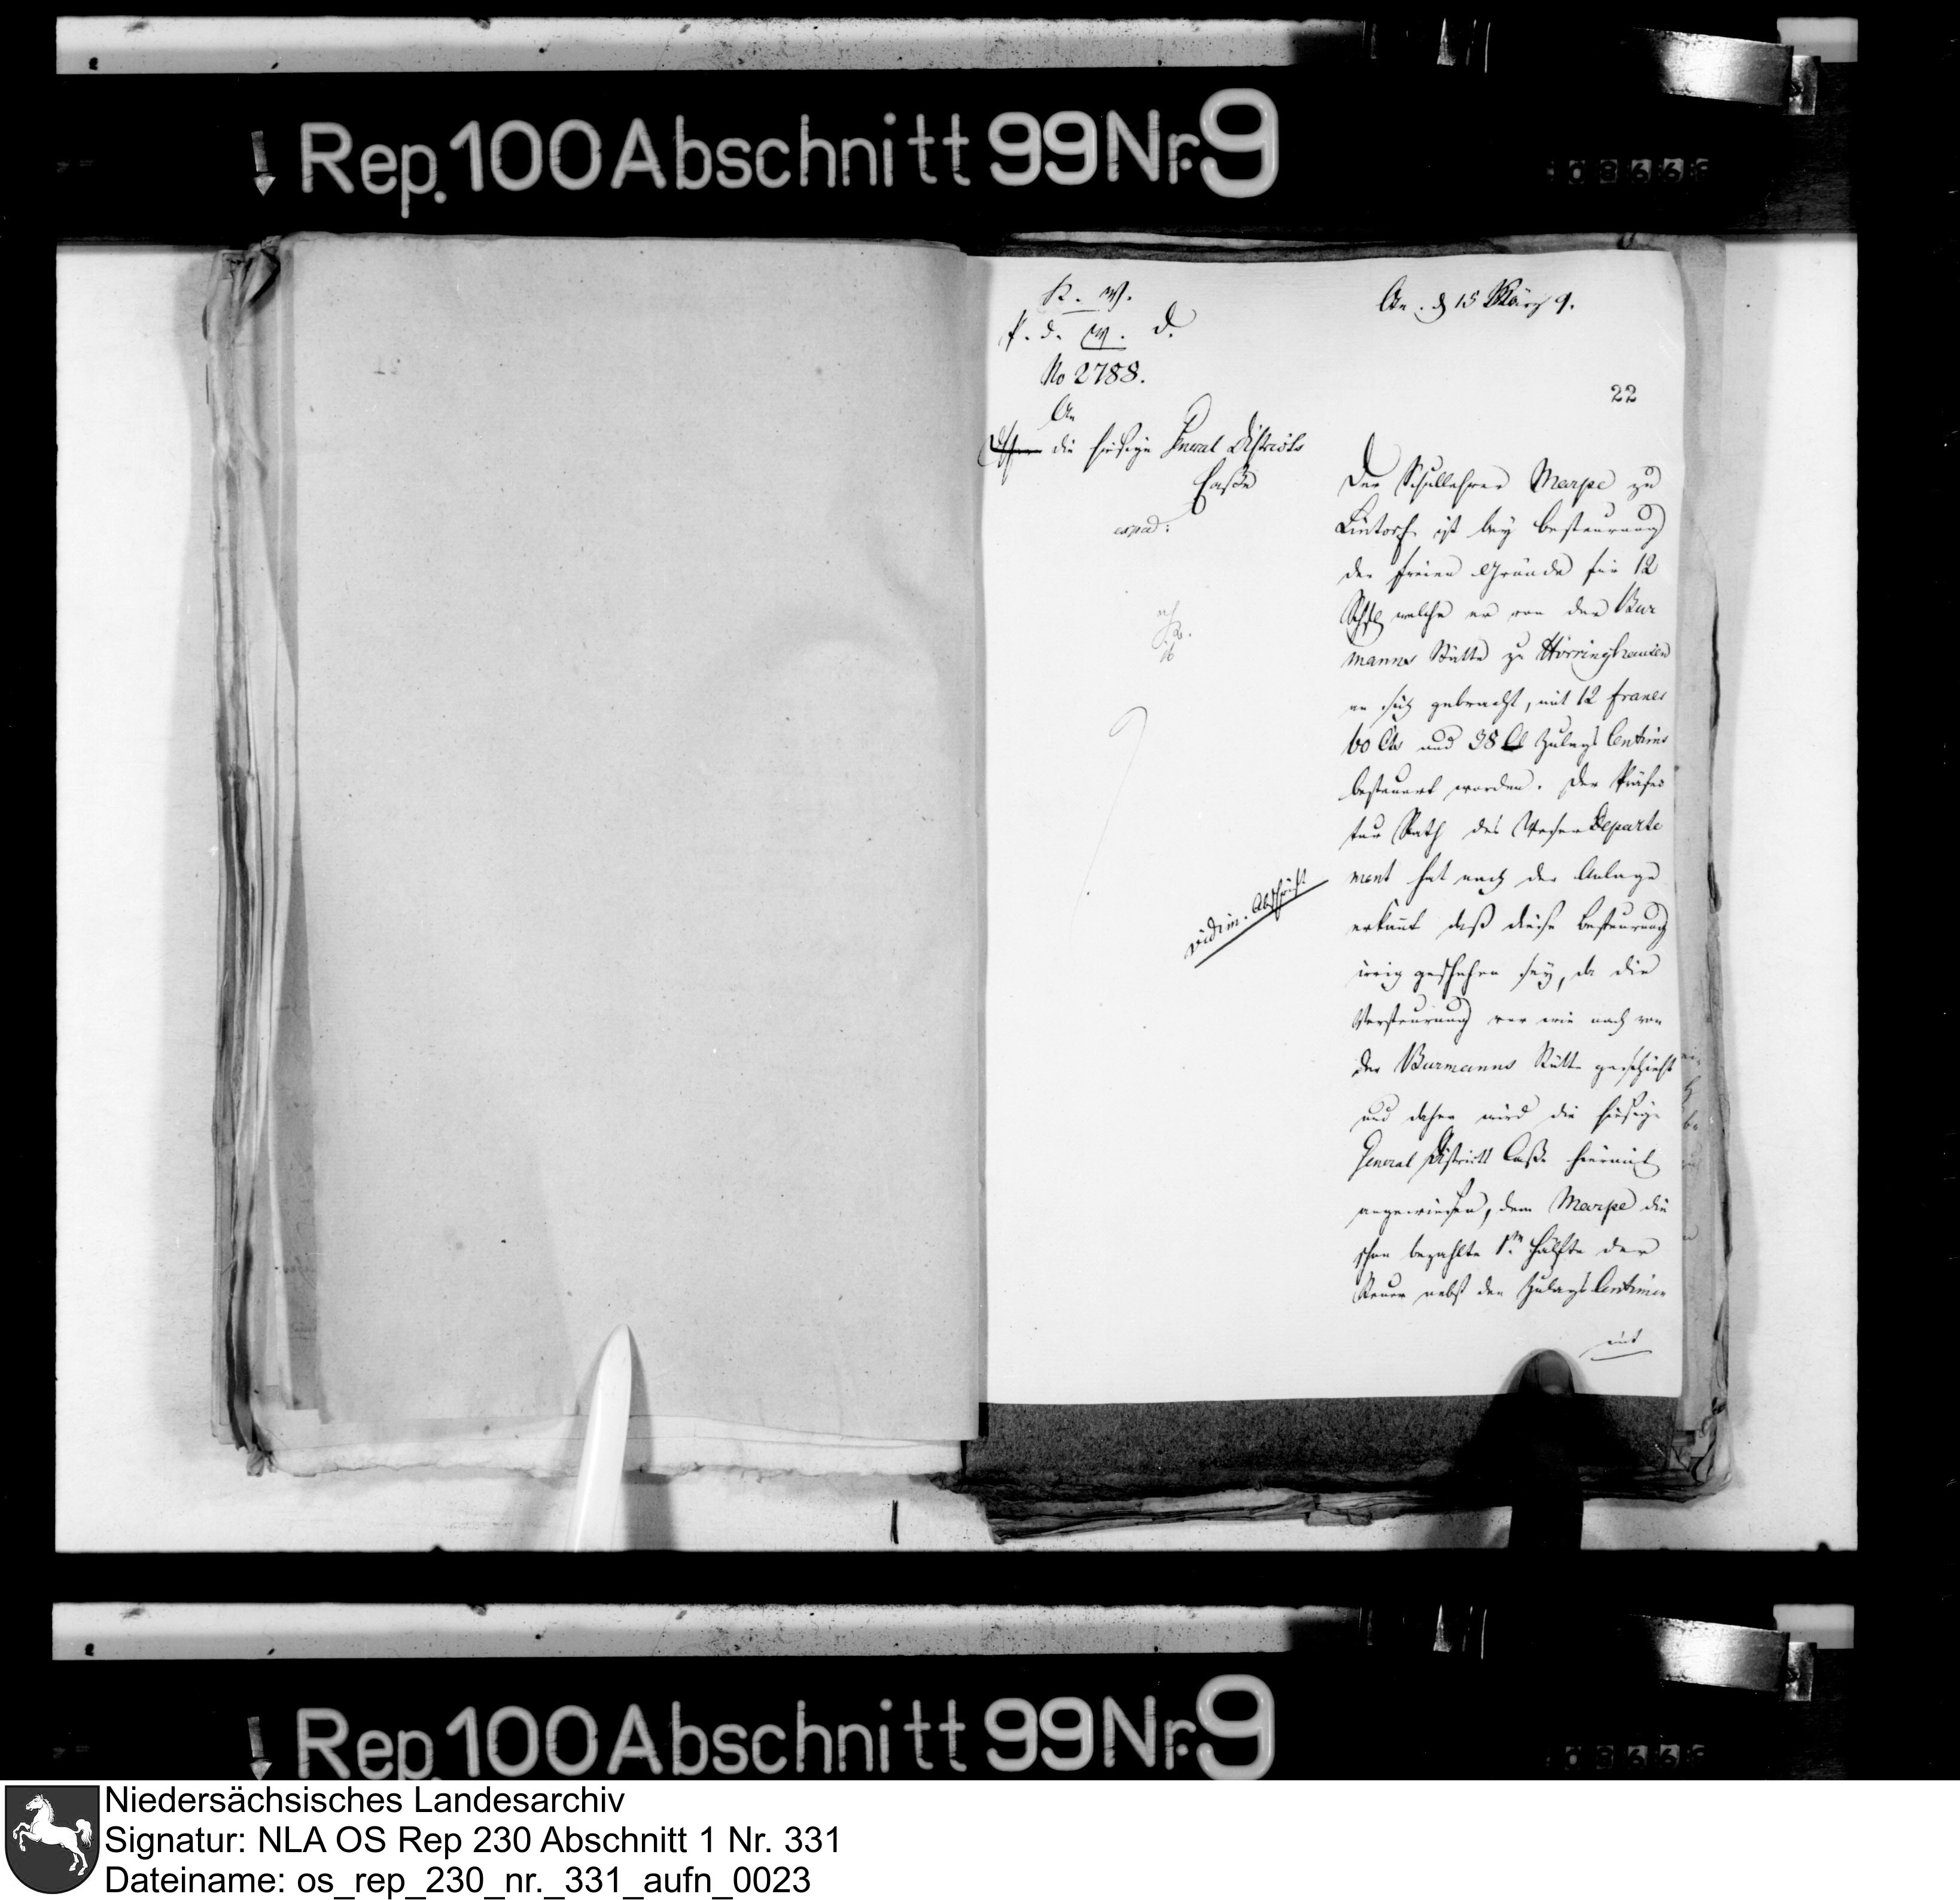 Rep. 100 Abschnitt 99 Nr. 9
K. W.
P. d. W. D.
No 2788.
An
die hiesige General Districts
Casse
exped:
vidim. Abschrift
On. d 15 März 9.
22
Der Schullehrer Marpe zu
Lintorf ist bey Besteurung
der freien Gründe für 12
Schfl welche er von der Bur
manns Stätte zu Hörringhausen
an sich gebracht, mit 12 francs
60 Cts und 38 Zulags Centims
besteuert worden. Der Präfec
tur Rath des Weser Departe
ment hat nach der Anlage
erkannt daß diese Besteurung
irrig geschehen sey, da die
Versteurung vor wie nach von
der Burmanns Stätte geschieht
und daher wird die hiesige
General District Casse hiermit
angewiesen, dem Marpe die
schon bezahlte 1te Hälfte der
Steuer nebst den Zulags Centimen
mit
Rep. 100 Abschnitt 99 Nr. 9
Niedersächsisches Landesarchiv
Signatur: NLA OS Rep 230 Abschnitt 1 Nr. 331
Dateiname: os_rep_230_nr._331_aufn_0023